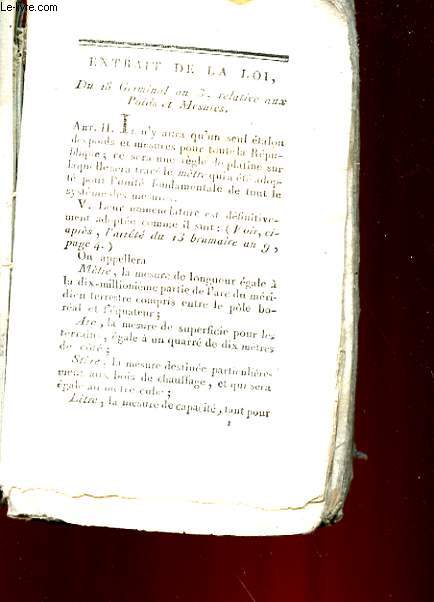 Le-livre.com
EXTRAIT DE LA LOI,
Du 18 Germinal an 3, relative aux
Poids et Mesures.
ART. II. Il n'y aura qu'un seul étalon
des poids et mesures pour toute la Répu-
blique; ce sera une règle de platine sur
laquelle sera tracé le mètre qui a été adop-
té pour l'unité fondamentale de tout le
système des mesures.
V. Leur nomenclature est définitive-
ment adoptée comme il suit: (Voir, ci-
après, l'arrêté du 13 brumaire an 9,
page 4.)
On appellera
Mètre, la mesure de longueur égale à
la dix-millionième partie de l'arc du méri-
dien terrestre compris entre le pôle bo-
réal et l'équateur;
Are, la mesure de superficie pour les
terrain, égale à un quarré de dix mètres
de côté;
Stère, la mesure destinée particulière-
ment aux bois de chauffage, et qui sera
égale au mètre cube;
Litre, la mesure de capacité, tant pour
1